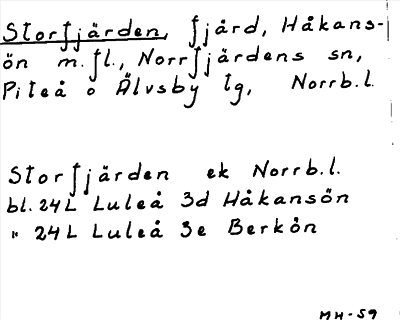 Storfjärden, fjärd, Håkans-
ön m.fl., Norrfjärdens sn,
Piteå o Älvsby tg, Norrb.l.
Storfjärden ek Norrb.l.
bl. 24L Luleå 3d Håkansön
" 24L Luleå 3e Berkön
MH-59